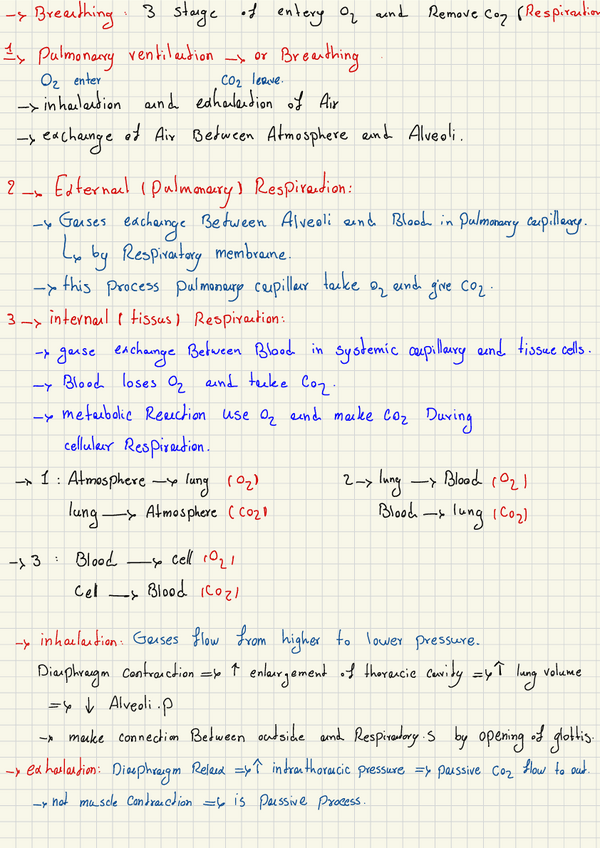 → Breathing: 3 stage of entery O₂ and Remove CO₂ (Respiration
1 → Pulmonary ventilation → or Breathing
O₂ enter CO₂ leave.
→ inhalation and exhalation of Air
→ exchange of Air Between Atmosphere and Alveoli.
2 → External (Pulmonary) Respiration:
→ Gases exchange Between Alveoli and Blood in pulmonary capillary.
↳ by Respiratory membrane.
→ this Process Pulmonary capillar take O₂ and give CO₂.
3 → internal (tissus) Respiration:
→ gase exchange Between Blood in systemic capillary and tissue cells.
→ Blood loses O₂ and take CO₂.
→ metabolic Reaction use O₂ and make CO₂ During
cellular Respiration.
→ 1: Atmosphere → lung (O₂) 2 → lung → Blood (O₂)
lung → Atmosphere (CO₂) Blood → lung (CO₂)
→ 3: Blood → cell (O₂)
Cell → Blood (CO₂)
→ inhalation: Gases flow from higher to lower pressure.
Diaphragm contraction ⇒ ↑ enlargement of thoracic cavity ⇒ ↑ lung volume
⇒ ↓ Alveoli.P
→ make connection Between outside and Respiratory.S by opening of glottis.
→ exhalation: Diaphragm Relax ⇒ ↑ intrathoracic pressure ⇒ passive CO₂ flow to out.
→ not muscle contraction ⇒ is Passive Process.